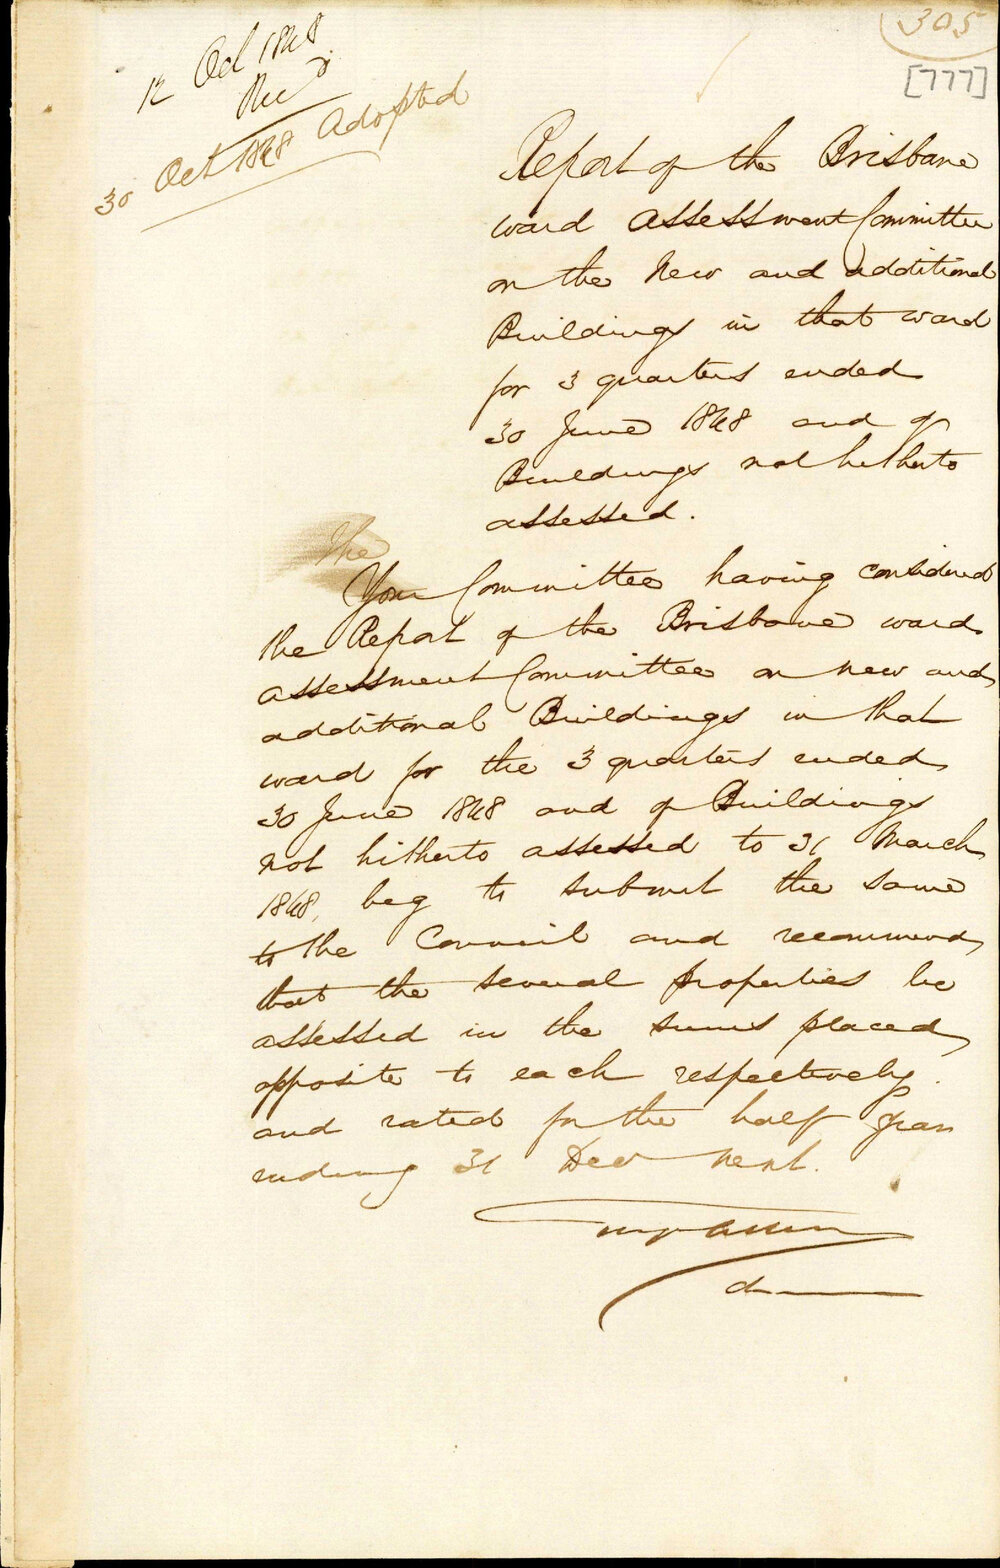 305
[777]
12 Oct 1848
Recd.
30 Oct 1848 Adopted
Report of the Brisbane
ward Assessment Committee
on the New and additional
Buildings in that ward
for 3 quarters ended
30 June 1848 and of
Buildings not hitherto
assessed.
The
Your Committee having considered
the Report of the Brisbane ward
assessment Committee on new and
additional Buildings in that
ward for the 3 quarters ended
30 June 1848 and of Buildings
not hitherto assessed to 31 March
1848, beg to submit the same
to the Council and recommend
that the several properties be
assessed in the sums placed
opposite to each respectively.
and rated for the half year
ending 31 Dec next.